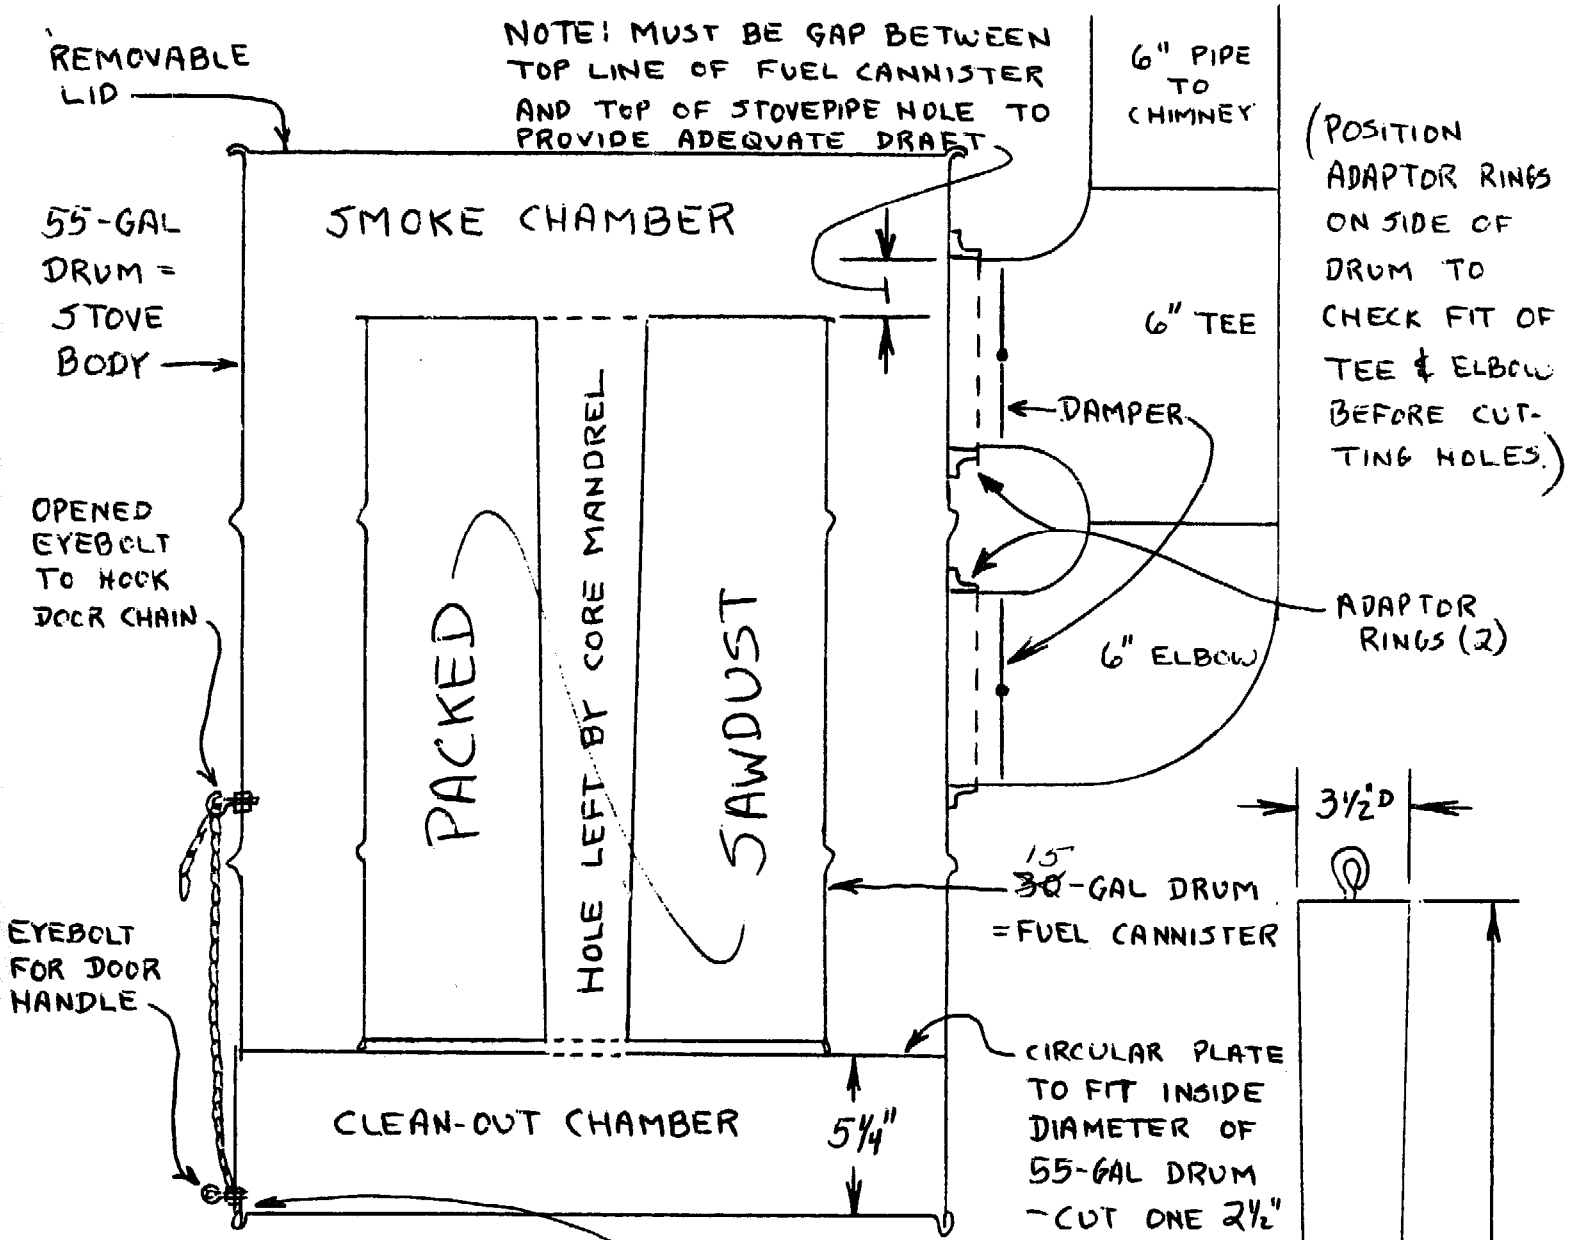 REMOVABLE
LID
NOTE! MUST BE GAP BETWEEN
TOP LINE OF FUEL CANNISTER
AND TOP OF STOVEPIPE HOLE TO
PROVIDE ADEQUATE DRAFT
6" PIPE
TO
CHIMNEY
(POSITION
ADAPTOR RINGS
ON SIDE OF
DRUM TO
CHECK FIT OF
TEE & ELBOW
BEFORE CUT-
TING HOLES.)
55-GAL
DRUM =
STOVE
BODY
SMOKE CHAMBER
6" TEE
DAMPER
OPENED
EYEBOLT
TO HOOK
DOOR CHAIN
PACKED
HOLE LEFT BY CORE MANDREL
SAWDUST
ADAPTOR
RINGS (2)
6" ELBOW
3½" D
15
30-GAL DRUM
= FUEL CANNISTER
EYEBOLT
FOR DOOR
HANDLE
CLEAN-OUT CHAMBER
5¼"
CIRCULAR PLATE
TO FIT INSIDE
DIAMETER OF
55-GAL DRUM
-CUT ONE 2½"